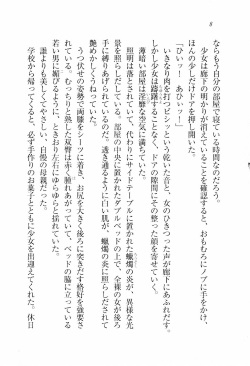 8
ならもう自分の部屋で寝ている時間なのだろう。
少女は廊下の明かりが消えていることを確認すると、おもむろにノブに手をかけ、
ほんの少しだけドアを押し開いた。
「ひぃッ！　あひぃッ！」
いきなり肉を打つピシッという乾いた音と、女のひきつった声が廊下にあふれだす。
少女は躊躇することなく、ドアの隙間にその整った顔を寄せていく。
薄暗い部屋は淫靡な空気に満ちていた。
照明は落とされ、代わりにサイドテーブルに置かれた蠟燭の炎が、異様な光
景を照らしている。部屋の中央に置かれたダブルベッドの上で、全裸の女が後ろ
手に縛りあげられているのだ。透き通るように白い肌が、蠟燭の炎に照らしだされて
艶めかしくうねっていた。
うつ伏せの姿勢で両膝をシーツに着き、お尻を大きく後ろに突きだす格好を強要さ
れている。むっちりと熟した双臀は赤く腫れあがっていて、ベッドの脇に立っている
若い男に媚びるように、ときおり左右にゆらゆらと揺れていた。
誰よりも美しくてやさしい、自慢の母親だった。
学校から帰ると、必ず手作りのお菓子とともに少女を出迎えてくれた。休日